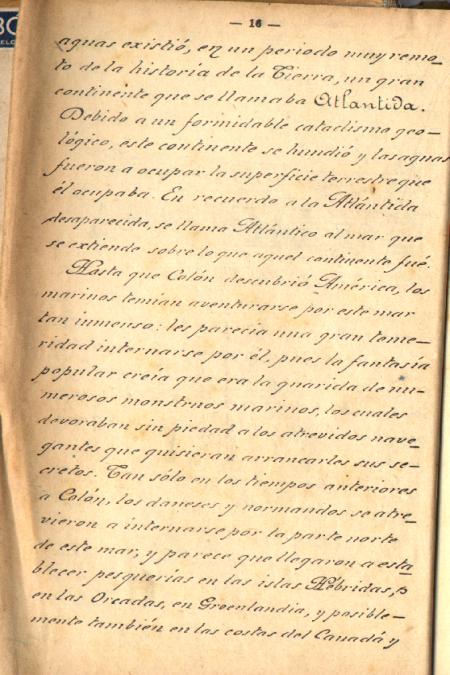 — 16 —
aguas existió, en un periodo muy remo-
to de la historia de la Tierra, un gran
continente que se llamaba Atlantida.
Debido a un formidable cataclismo geo-
lógico, este continente se hundió y las aguas
fueron a ocupar la superficie terrestre que
él ocupaba. En recuerdo a la Atlántida
desaparecida, se llama Atlántico al mar que
se extiende sobre lo que aquel continente fué.
Hasta que Colón descubrió América, los
marinos temían aventurarse por este mar
tan inmenso: les parecia una gran teme-
ridad internarse por él, pues la fantasía
popular creía que era la guarida de nu-
merosos monstruos marinos, los cuales
devoraban sin piedad a los atrevidos nave-
gantes que quisieran arrancarles sus se-
cretos. Tan sólo en los tiempos anteriores
a Colón, los daneses y normandos se atre-
vieron a internarse por la parte norte
de este mar, y parece que llegaron a esta-
blecer pesquerías en las islas Hébridas,
en las Orcadas, en Groenlandia, y posible-
mente también en las costas del Canadá y